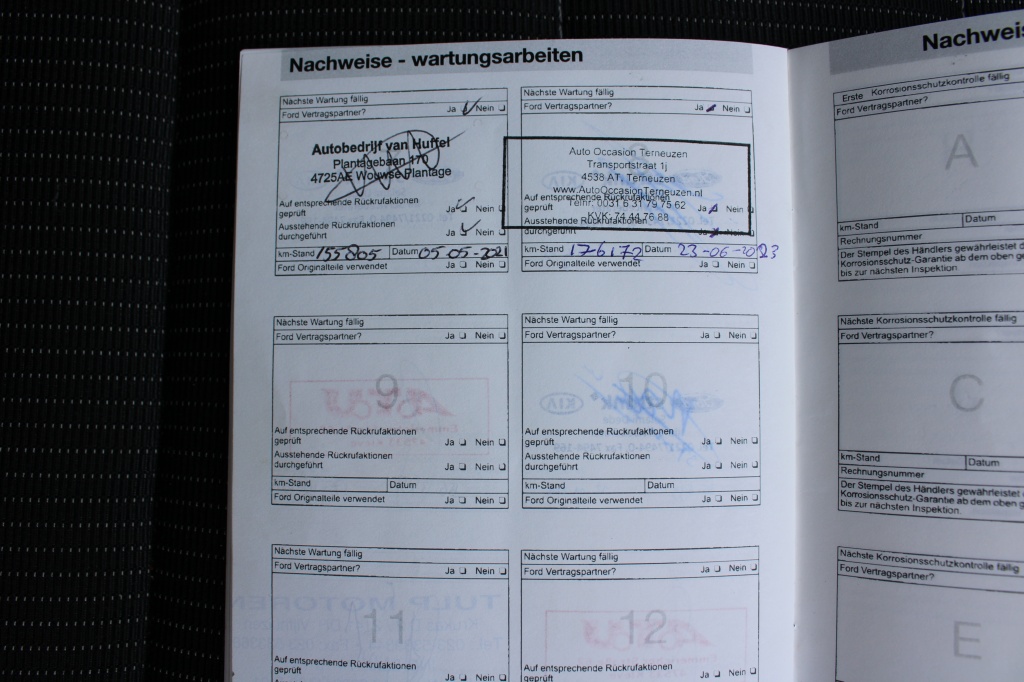 Nachweise - wartungsarbeiten
Nächste Wartung fällig
Ford Vertragspartner? Ja Nein
Autobedrijf van Huffel
Plantagebaan 170
4725AE Wouwse Plantage
Auf entsprechende Rückrufaktionen
geprüft Ja Nein
Ausstehende Rückrufaktionen
durchgeführt Ja Nein
km-Stand 155805 Datum 05-05-2021
Ford Originalteile verwendet Ja Nein
Nächste Wartung fällig
Ford Vertragspartner? Ja Nein
Auto Occasion Terneuzen
Transportstraat 1j
4538 AT, Terneuzen
www.AutoOccasionTerneuzen.nl
Auf entsprechende Rückrufaktionen
Telnr: 0031 6 31 79 75 62
geprüft Ja Nein
KVK: 74 44 76 88
Ausstehende Rückrufaktionen
durchgeführt Ja Nein
km-Stand 176172 Datum 23-06-2023
Ford Originalteile verwendet Ja Nein
Nächste Wartung fällig
Ford Vertragspartner? Ja Nein
9
Auf entsprechende Rückrufaktionen
geprüft Ja Nein
Ausstehende Rückrufaktionen
durchgeführt Ja Nein
km-Stand Datum
Ford Originalteile verwendet Ja Nein
Nächste Wartung fällig
Ford Vertragspartner? Ja Nein
10
KIA
Auf entsprechende Rückrufaktionen
geprüft Ja Nein
Ausstehende Rückrufaktionen
durchgeführt Ja Nein
km-Stand Datum
Ford Originalteile verwendet Ja Nein
Nächste Wartung fällig
Ford Vertragspartner? Ja Nein
TULP MOTOREN
11
Auf entsprechende Rückrufaktionen
geprüft Ja Nein
Nächste Wartung fällig
Ford Vertragspartner? Ja Nein
12
Auf entsprechende Rückrufaktionen
geprüft Ja Nein
Erste Korrosionsschutzkontrolle fällig
Ford Vertragspartner?
A
km-Stand Datum
Rechnungsnummer
Der Stempel des Händlers gewährleistet
Korrosionsschutz-Garantie ab dem oben
bis zur nächsten Inspektion.
Nächste Korrosionsschutzkontrolle fällig
Ford Vertragspartner?
C
km-Stand Datum
Rechnungsnummer
Der Stempel des Händlers gewährleistet
Korrosionsschutz-Garantie ab dem oben
bis zur nächsten Inspektion.
Nächste Korrosionsschutzkontrolle fällig
Ford Vertragspartner?
E